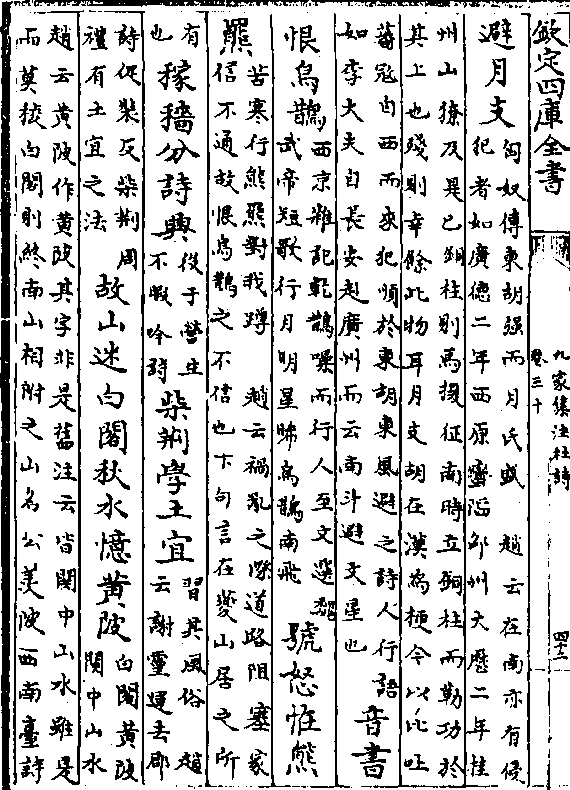 欽定四庫全書
九家集注杜詩
卷三十
四十二
避月支
匈奴傳東胡强而月氏盛 趙云在南亦有侵
犯者如廣德二年西原蠻陷邵州大歷二年桂
州山獠反是已銅柱則馬援征南時立銅柱而勒功於
其上也殘則幸餘此物耳月支胡在漢為梗今以比吐
蕃冠自西而來犯順於東胡東風避之詩人行語
如李大夫自長安赴廣州而云南斗避文星也
音書
恨烏鵲
西京雜記乾鵲噪而行人至文選魏
武帝短歌行月明星晞烏鵲南飛
號怒恠熊
羆
苦寒行熊羆對我蹲 趙云禍亂之際道路阻塞家
信不通故恨烏鵲之不信也下句言在夔山居之所
有
也
稼穡分詩興
役于營生
不暇吟詩
柴荆學土宜
習其風俗 趙
云謝靈運去郡
詩促裝反柴荆周
禮有土宜之法
故山迷白閣秋水憶黄陂
白閣黄陂
關中山水
趙云黄陂作黄陂其字非是舊注云皆關中山水雖是
而莫挍白閣則終南山相附之山名公美陂西南臺詩